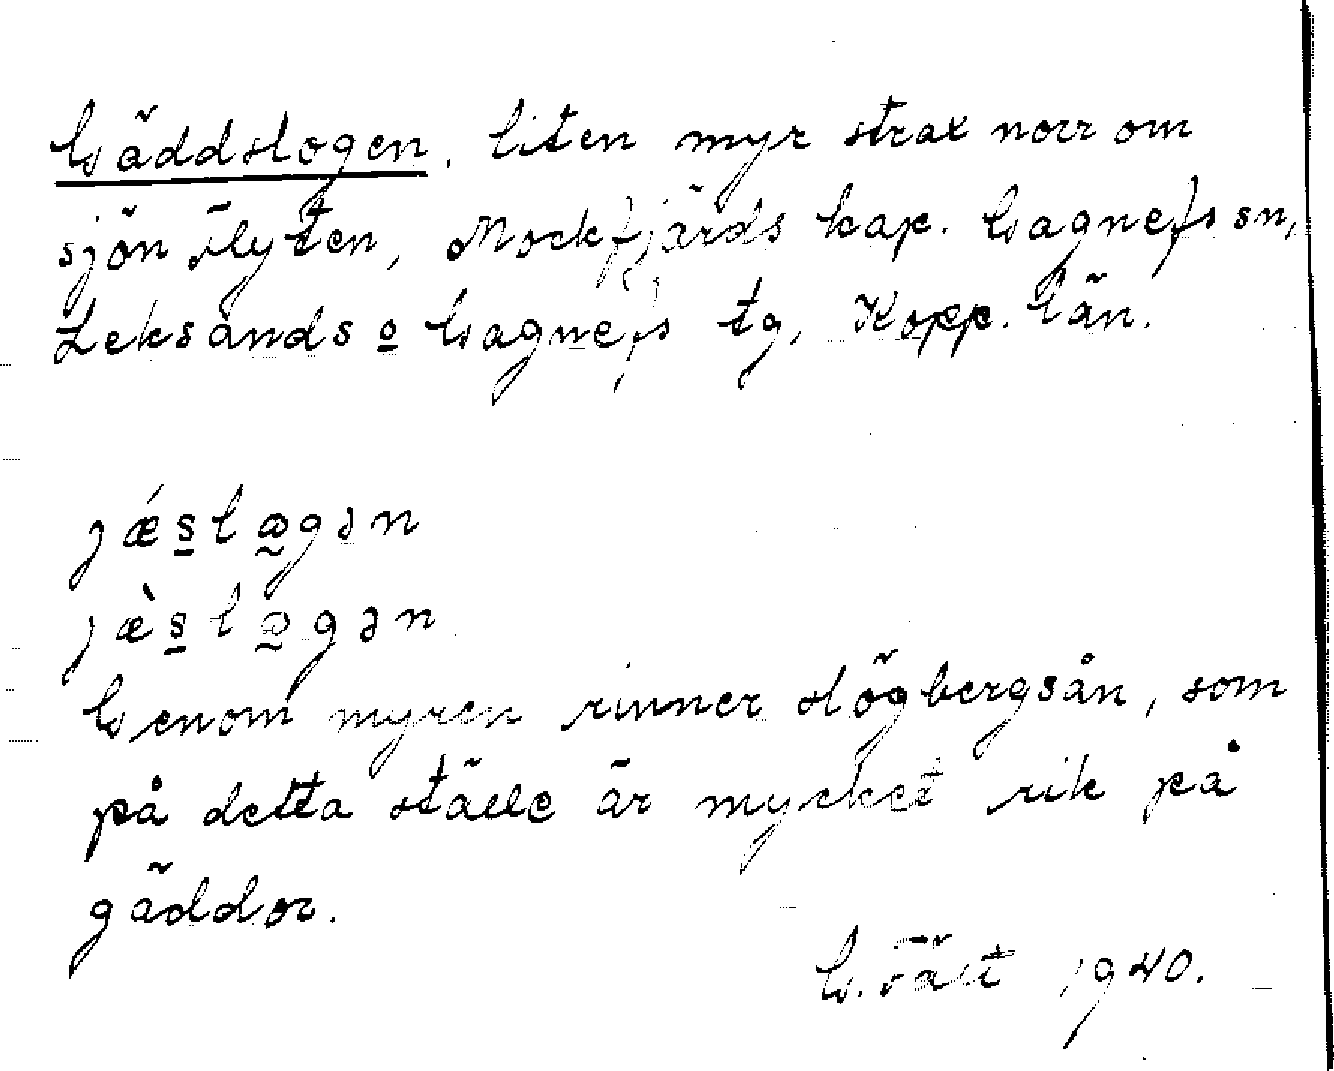 Gäddslogen. Liten myr strax norr om
sjön Flyten, Mockfjärds kap. Gagnefs sn,
Leksands o Gagnefs tg, Kopp. län.
jǽs̲lœ̰gən
jæ̀s̲lœ̰gən
Genom myren rinner Högbergsån, som
på detta ställe är mycket rik på
gäddor.
G. Fält 1940.